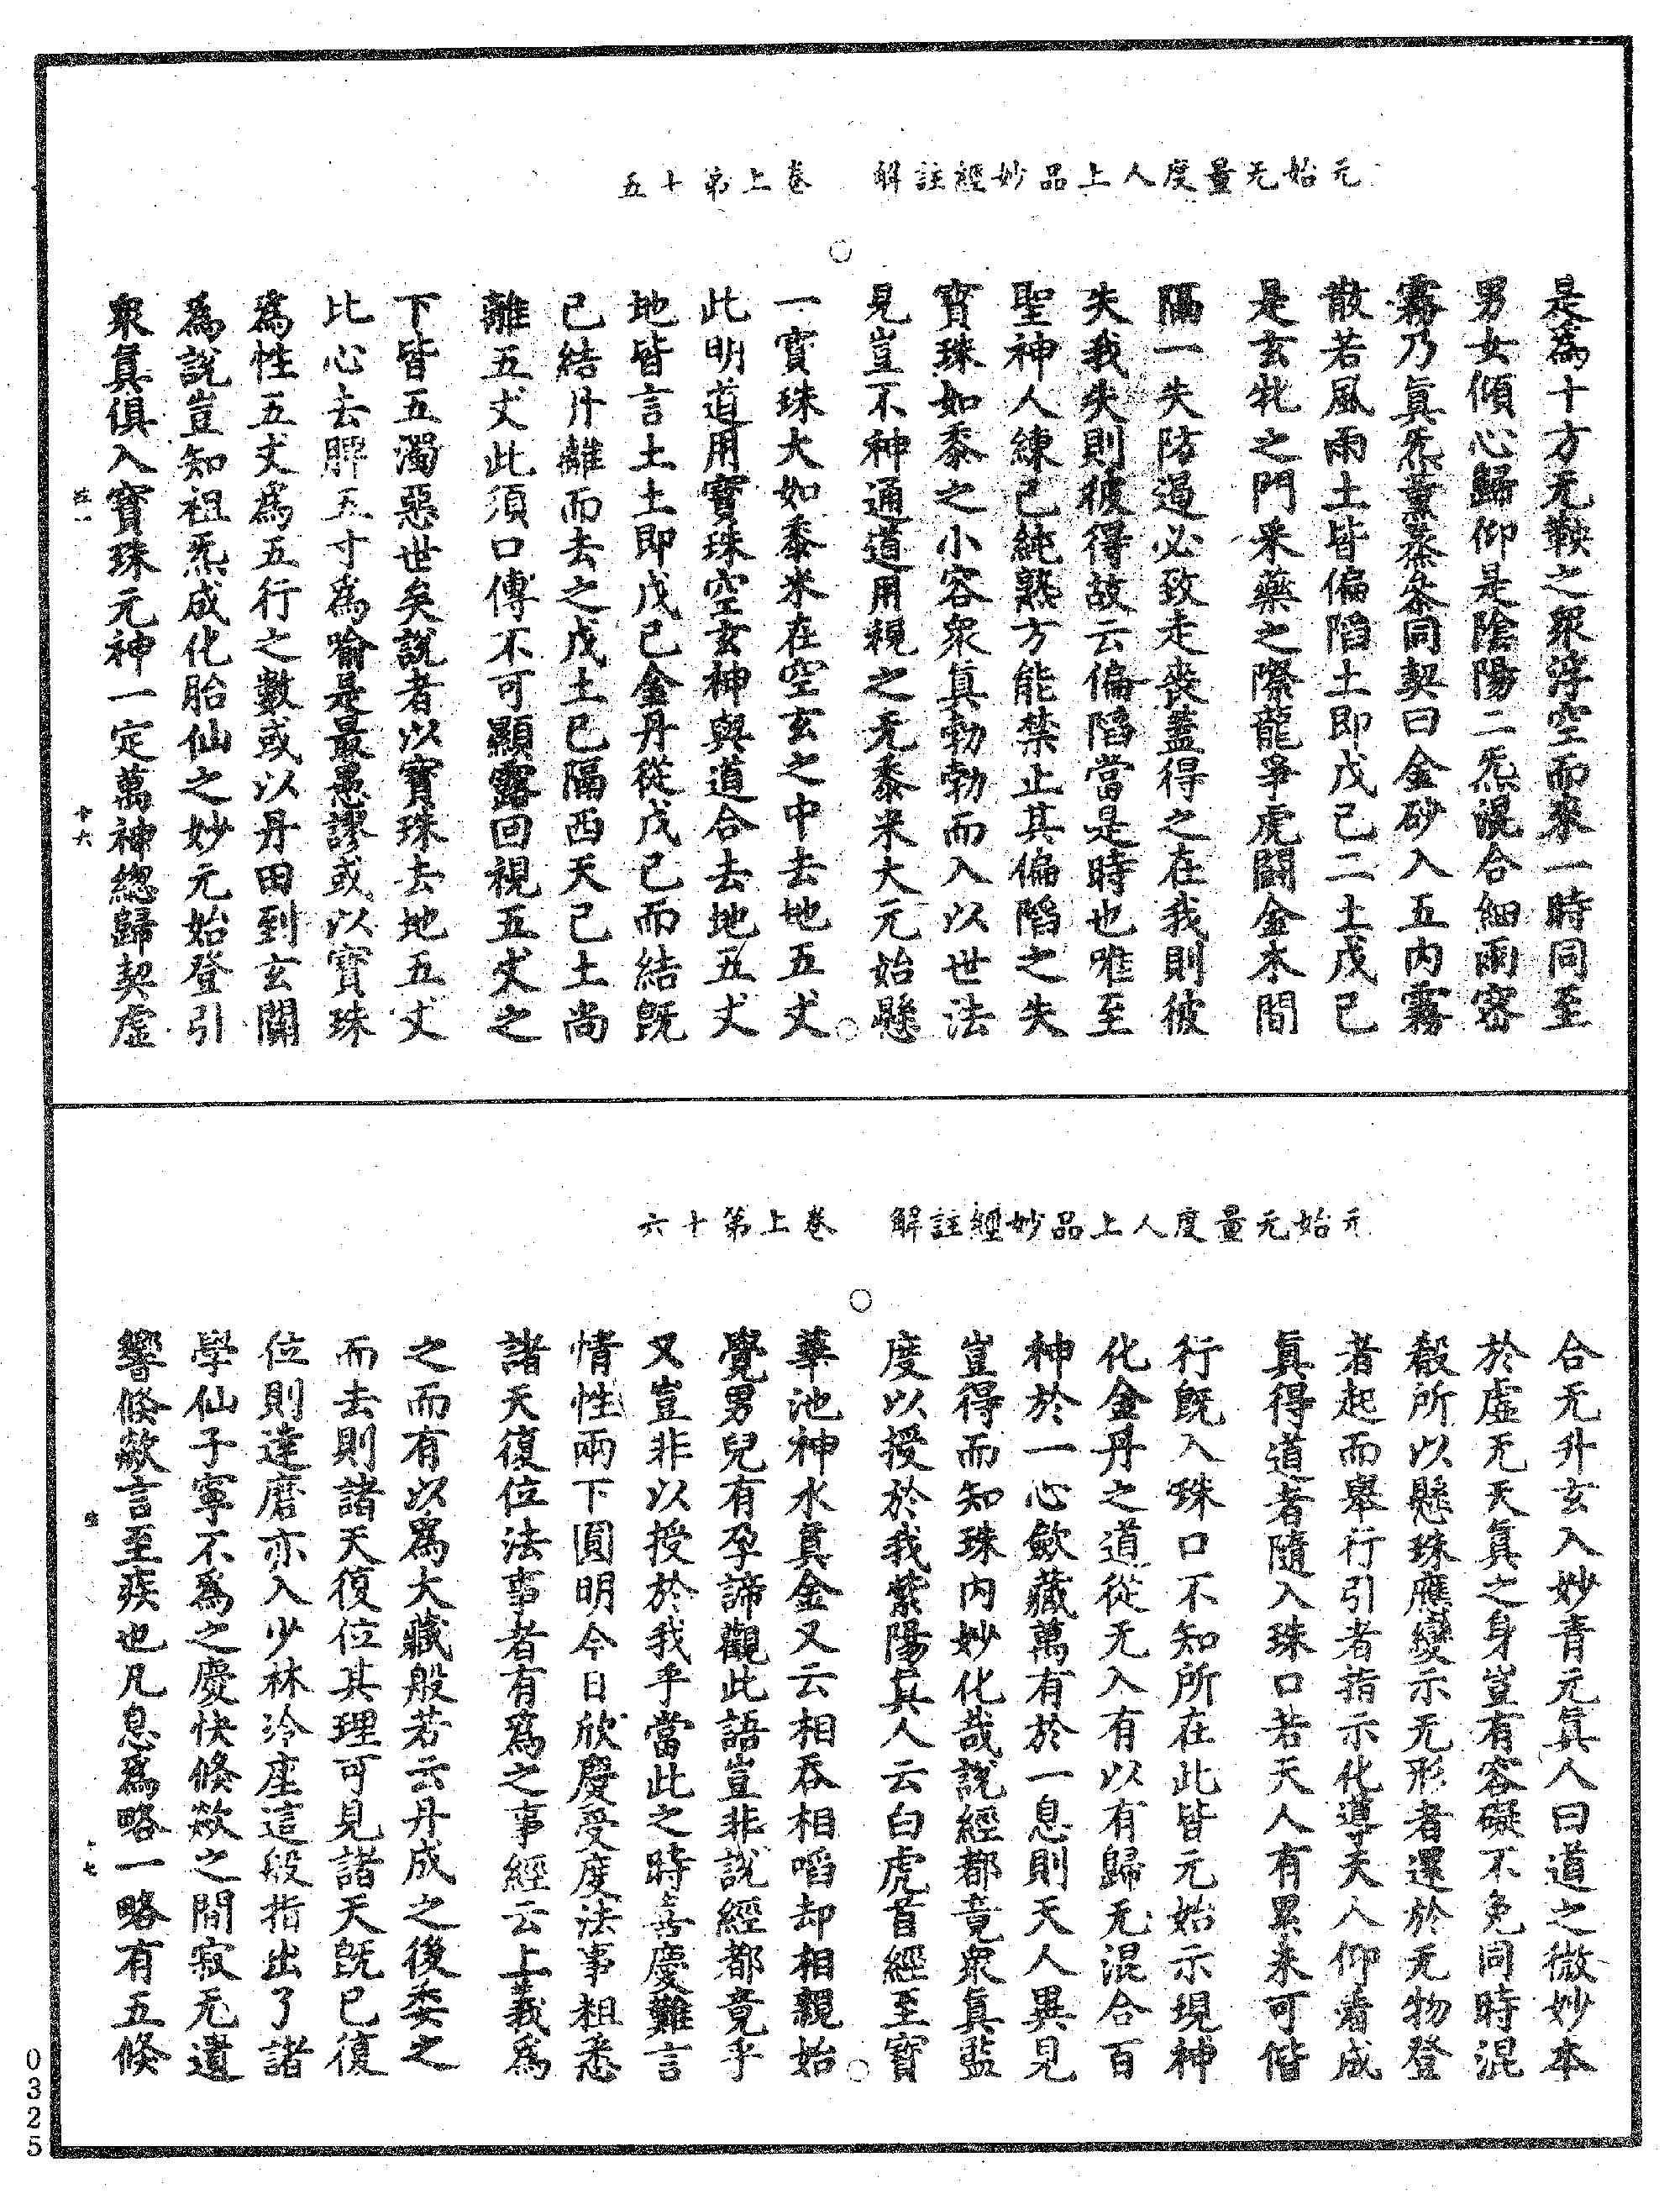 元始无量度人上品妙經註解　卷上第十五
是為十方无鞅之眾浮空而來一時同至
男女傾心歸仰是陰陽二炁混合細雨密
霧乃真炁薰蒸參同契曰金砂入五內霧
散若風雨土皆偏陷土即戊己二土戊己
是玄牝之門采藥之際龍爭虎鬪金木間
隔一失防遏必致走喪蓋得之在我則彼
失我失則彼得故云偏陷當是時也唯至
聖神人練己純熟方能禁止其偏陷之失
寶珠如黍之小容眾真勃勃而入以世法
見豈不神通道用視之无黍米大元始懸
一寶珠大如黍米在空玄之中去地五丈
此明道用寶珠空玄神與道合去地五丈
地皆言土土即戊己金丹從戊己而結既
已結片離而去之戊土已隔西天己土尚
離五丈此須口傳不可顯露回視五丈之
下皆五濁惡世矣說者以寶珠去地五丈
比心去脾五寸為喻是最愚謬或以寶珠
為性五丈為五行之數或以丹田到玄關
為說豈知祖炁成化胎仙之妙元始登引
眾真俱入寶珠元神一定萬神總歸契虛
十六
元始无量度人上品妙經註解　卷上第十六
合无升玄入妙青元真人曰道之微妙本
於虛无天真之身豈有容礙不免同時混
殽所以懸珠應變示无形者還於无物登
者起而舉行引者指示化導天人仰看成
真得道者隨入珠口若天人有累未可偕
行既入珠口不知所在此皆元始示現神
化金丹之道從无入有以有歸无混合百
神於一心斂藏萬有於一息則天人異見
豈得而知珠內妙化哉說經都竟眾真監
度以授於我紫陽真人云白虎首經至寶
華池神水真金又云相吞相啗却相親始
覺男兒有孕諦觀此語豈非說經都竟乎
又豈非以授於我乎當此之時喜慶難言
情性兩下圓明今日欣慶受度法事粗悉
諸天復位法事者有為之事經云上義為
之而有以為大藏般若云丹成之後委之
而去則諸天復位其理可見諸天既已復
位則達磨亦入少林冷座這般指出了諸
學仙子寧不為之慶快倏欻之間寂无遺
響倏欻言至疾也凡息為略一略有五倏
十七
0325